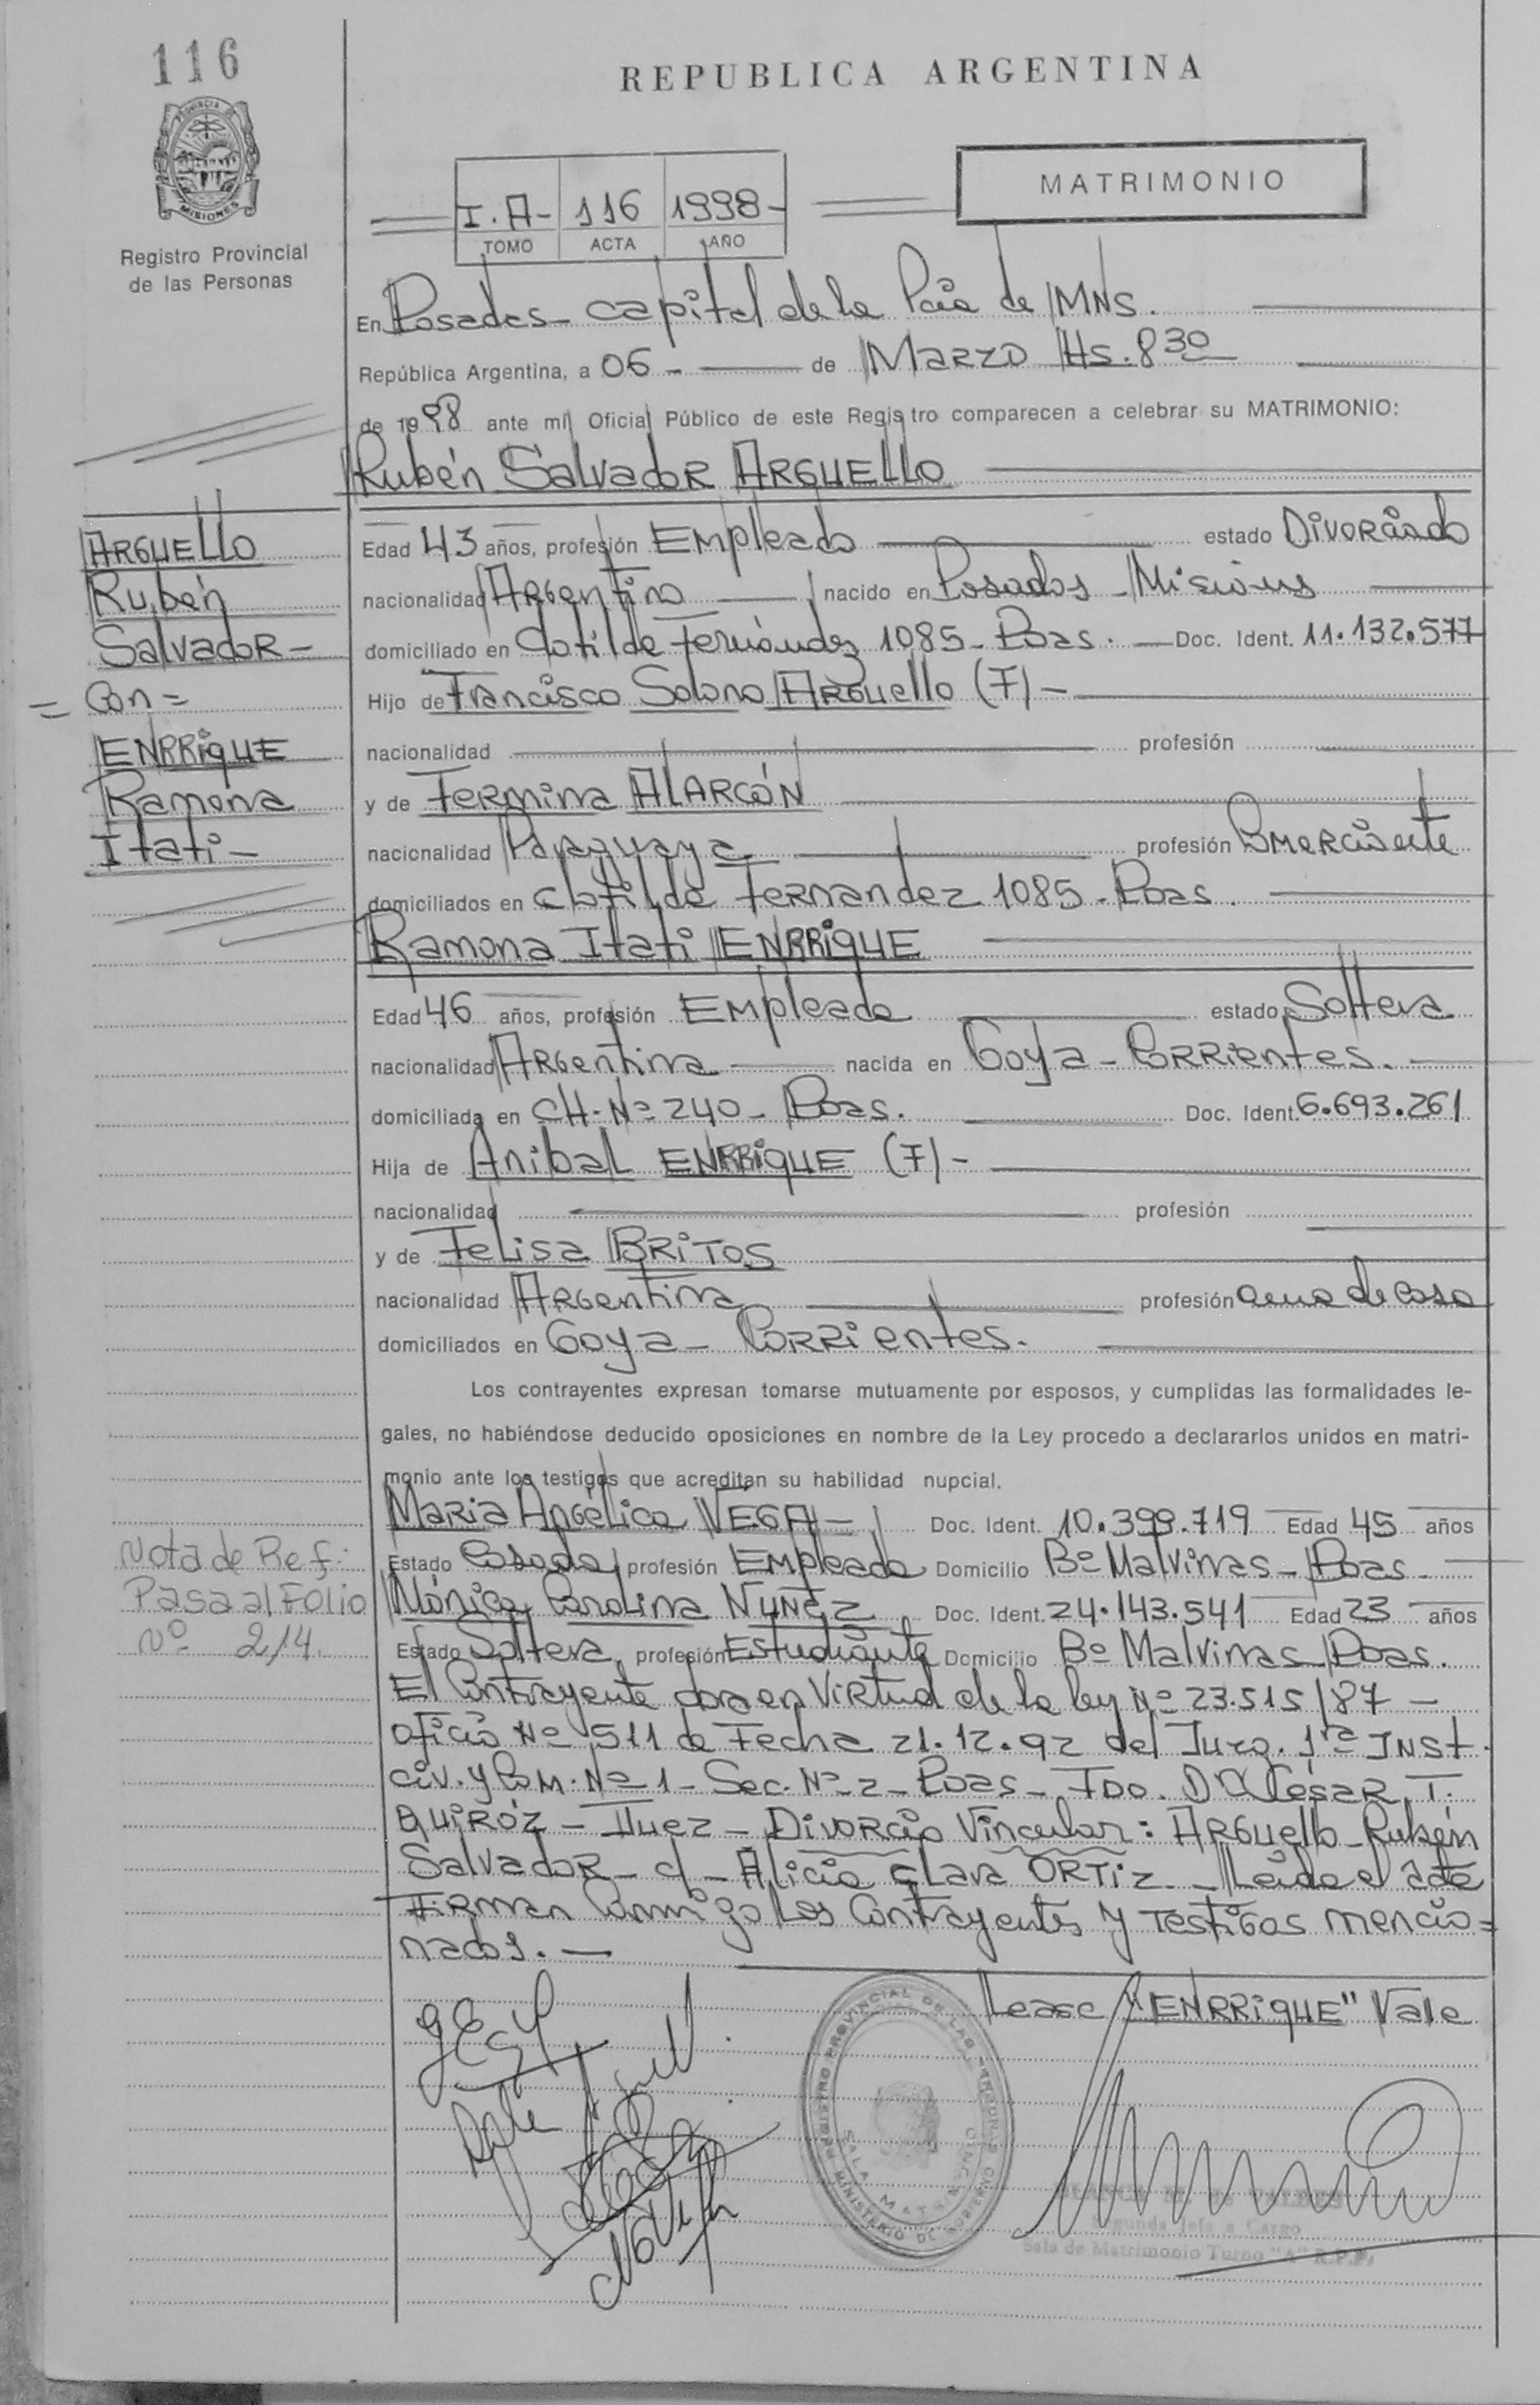 116
PROVINCIA
MISIONES
Registro Provincial
de las Personas
REPUBLICA ARGENTINA
MATRIMONIO
I. A- 116 1998-
TOMO ACTA AÑO
En Posadas - capital de la Pcia de MNS.
República Argentina, a 06 - de Marzo Hs. 8 30
de 1998 ante mi Oficial Público de este Registro comparecen a celebrar su MATRIMONIO:
Rubén Salvador ARGUELLO
ARGUELLO
Rubén
Salvador -
= Con =
ENRRIQUE
Ramona
Itati -
Edad 43 años, profesión Empleado estado Divorciado
nacionalidad Argentino nacido en Posadas - Misiones
domiciliado en Clotilde Fernández 1085 - Pdas. - Doc. Ident. 11.132.577
Hijo de Francisco Solano Arguello (F) -
nacionalidad profesión
y de Fermina ALARCÓN
nacionalidad Paraguaya profesión Comerciante
domiciliados en Clotilde Fernandez 1085 - Pdas.
Ramona Itati ENRRIQUE
Edad 46 años, profesión Empleada estado Soltera
nacionalidad Argentina nacida en Goya - Corrientes.
domiciliada en CH. Nº 240 - Pdas. Doc. Ident. 6.693.261
Hija de Anibal ENRRIQUE (F) -
nacionalidad profesión
y de Felisa BRITOS
nacionalidad Argentina profesión ama de casa
domiciliados en Goya - Corrientes.
Los contrayentes expresan tomarse mutuamente por esposos, y cumplidas las formalidades le-
gales, no habiéndose deducido oposiciones en nombre de la Ley procedo a declararlos unidos en matri-
monio ante los testigos que acreditan su habilidad nupcial.
Maria Angélica VEGA - Doc. Ident. 10.399.719 Edad 45 años
Estado Casada profesión Empleada Domicilio Bº Malvinas - Pdas.
Mónica Carolina NUÑEZ Doc. Ident. 24.143.541 Edad 23 años
Estado Soltera profesión Estudiante Domicilio Bº Malvinas Pdas.
Nota de Ref:
Pasa al Folio
Nº 214.
El Contrayente lo hace en Virtud de la ley Nº 23.515/87 -
Oficio Nº 511 de Fecha 21.12.92 del Juzg. 1ra INST.
Civ. y Com. Nº 1 - Sec. Nº 2 - Pdas - FDO. Dr. César T.
QUIRÓZ - Juez - Divorcio Vincular: Arguello Rubén
Salvador - c/ - Alicia Clara ORTIZ. - Leida el acta
Firman Conmigo Los Contrayentes y Testigos mencio=
nados. -
Lease "ENRRIQUE" Vale
REGISTRO PROVINCIAL DE LAS PERSONAS
MINISTERIO DE GOBIERNO
SALA MATRIMONIO
Segunda Jefa a Cargo
Sala de Matrimonio Turno "A" R.P.P.